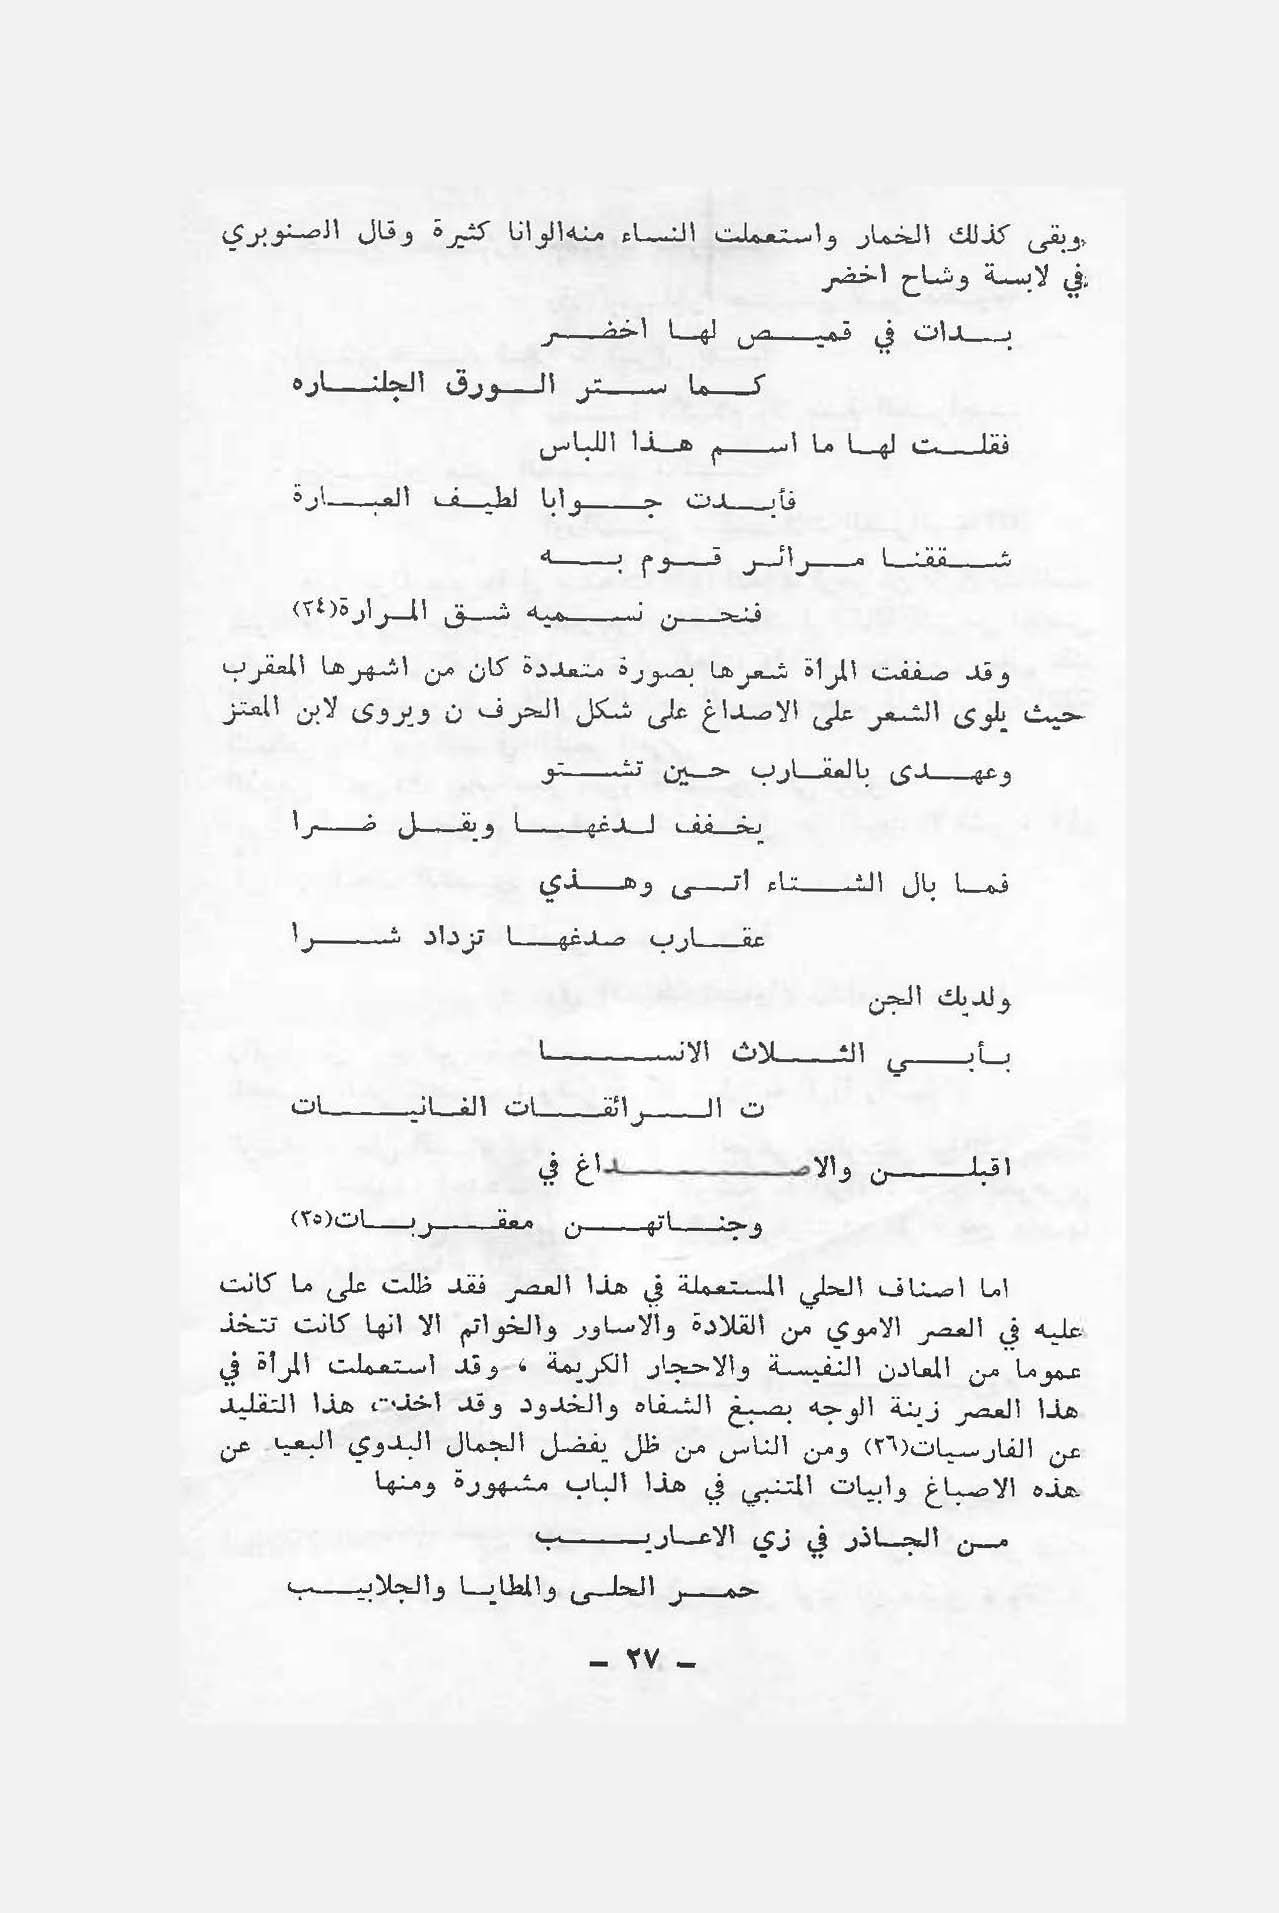 وبقى كذلك الخمار واستعملت النساء منه الوانا كثيرة وقال الصنوبري
في لابسة وشاح اخضر
بدات في قميص لها اخضر
كما ستر الورق الجلناره
فقلت لها ما اسم هذا اللباس
فأبدت جوابا لطيف العبارة
شققنا مرائر قوم به
فنحن نسميه شق المرارة(٢٤)
وقد صففت المرأة شعرها بصورة متعددة كان من اشهرها المعقرب
حيث يلوى الشعر على الاصداغ على شكل الحرف ن ويروى لابن المعتز
وعهدى بالعقارب حين تشتو
يخفف لدغها ويقل ضرا
فما بال الشتاء اتى وهذي
عقارب صدغها تزداد شرا
ولديك الجن
بأبي الثلاث الانسا
ت الرائقات الفانيات
اقبلن والاصداغ في
وجناتهن معقربات(٢٥)
اما اصناف الحلي المستعملة في هذا العصر فقد ظلت على ما كانت
عليه في العصر الاموي من القلادة والاساور والخواتم الا انها كانت تتخذ
عموما من المعادن النفيسة والاحجار الكريمة ، وقد استعملت المرأة في
هذا العصر زينة الوجه بصبغ الشفاه والخدود وقد اخذت هذا التقليد
عن الفارسيات(٢٦) ومن الناس من ظل يفضل الجمال البدوي عن
هذه الاصباغ وابيات المتنبي في هذا الباب مشهورة ومنها
من الجاذر في زي الاعاريب
حمر الحلى والمطايا والجلابيب
- ٢٧ -